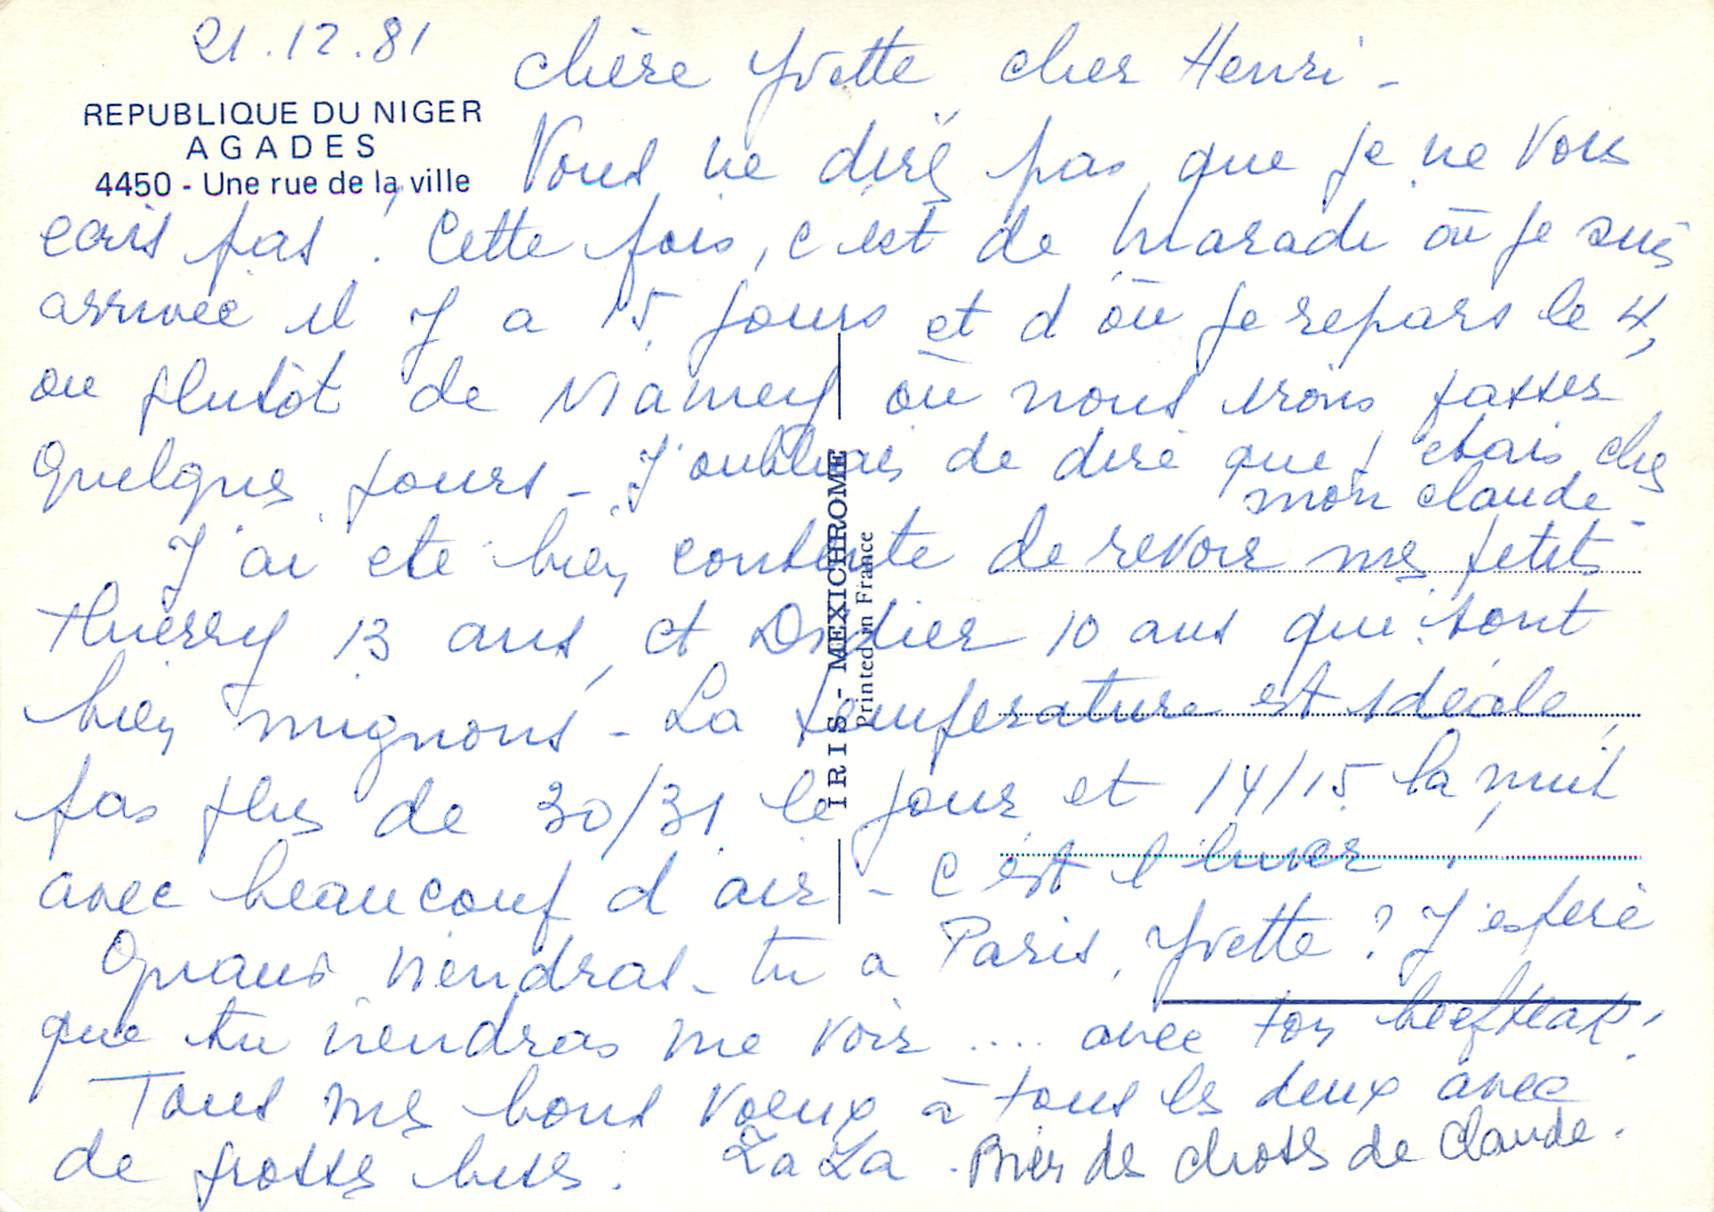 21.12.81
REPUBLIQUE DU NIGER
AGADES
4450 - Une rue de la ville
Chère Yvette cher Henri -
Vous ne direz pas que je ne vous
écris pas ! Cette fois, c'est de Maradi où je suis
arrivée il y a 15 jours et d'où je repars le 4,
ou plutôt de Niamey où nous irons passer
quelques jours - J'oubliais de dire que j'étais chez
mon Claude -
J'ai été bien contente de revoir mes petits
Thierry 13 ans, et Didier 10 ans qui sont
bien mignons - La température est idéale,
pas plus de 30/31 le jour et 14/15 la nuit
avec beaucoup d'air - C'est l'hiver !
Quand viendras-tu à Paris, Yvette ? J'espère
que tu viendras me voir .... avec ton beefsteak !
Tous mes bons voeux à tous les deux avec
de grosses bises. Zaza. Bien des choses de Claude.
IRIS - MEXICHROME
Printed in France